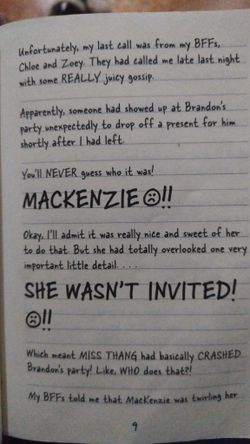 Unfortunately, my last call was from my BFFs,
Chloe and Zoey. They had called me late last night
with some REALLY juicy gossip.
Apparently, someone had showed up at Brandon's
party unexpectedly to drop off a present for him
shortly after I had left.
You'll NEVER guess who it was!
MACKENZIE ☹!!
Okay, I'll admit it was really nice and sweet of her
to do that. But she had totally overlooked one very
important little detail. . . .
SHE WASN'T INVITED!
☹!!
Which meant MISS THANG had basically CRASHED
Brandon's party! Like, WHO does that?!
My BFFs told me that MacKenzie was twirling her
9